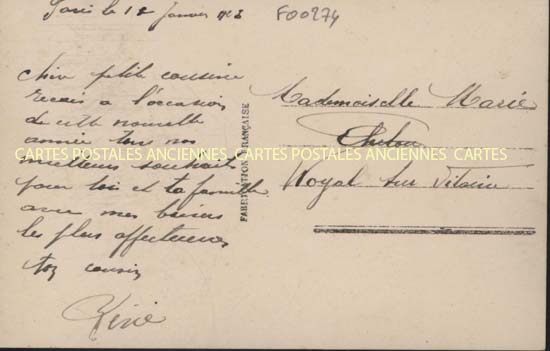 Paris le 12 Janvier 1923
F00274
Chère petite cousine
reçois à l'occasion
de cette nouvelle
année tous nos
meilleurs souhaits
pour toi et ta famille
avec mes baisers
les plus affectueux
ton cousin
René
FABRICATION FRANÇAISE
Mademoiselle Marie
Noyal sur Vilaine
CARTES POSTALES ANCIENNES CARTES POSTALES ANCIENNES CARTES